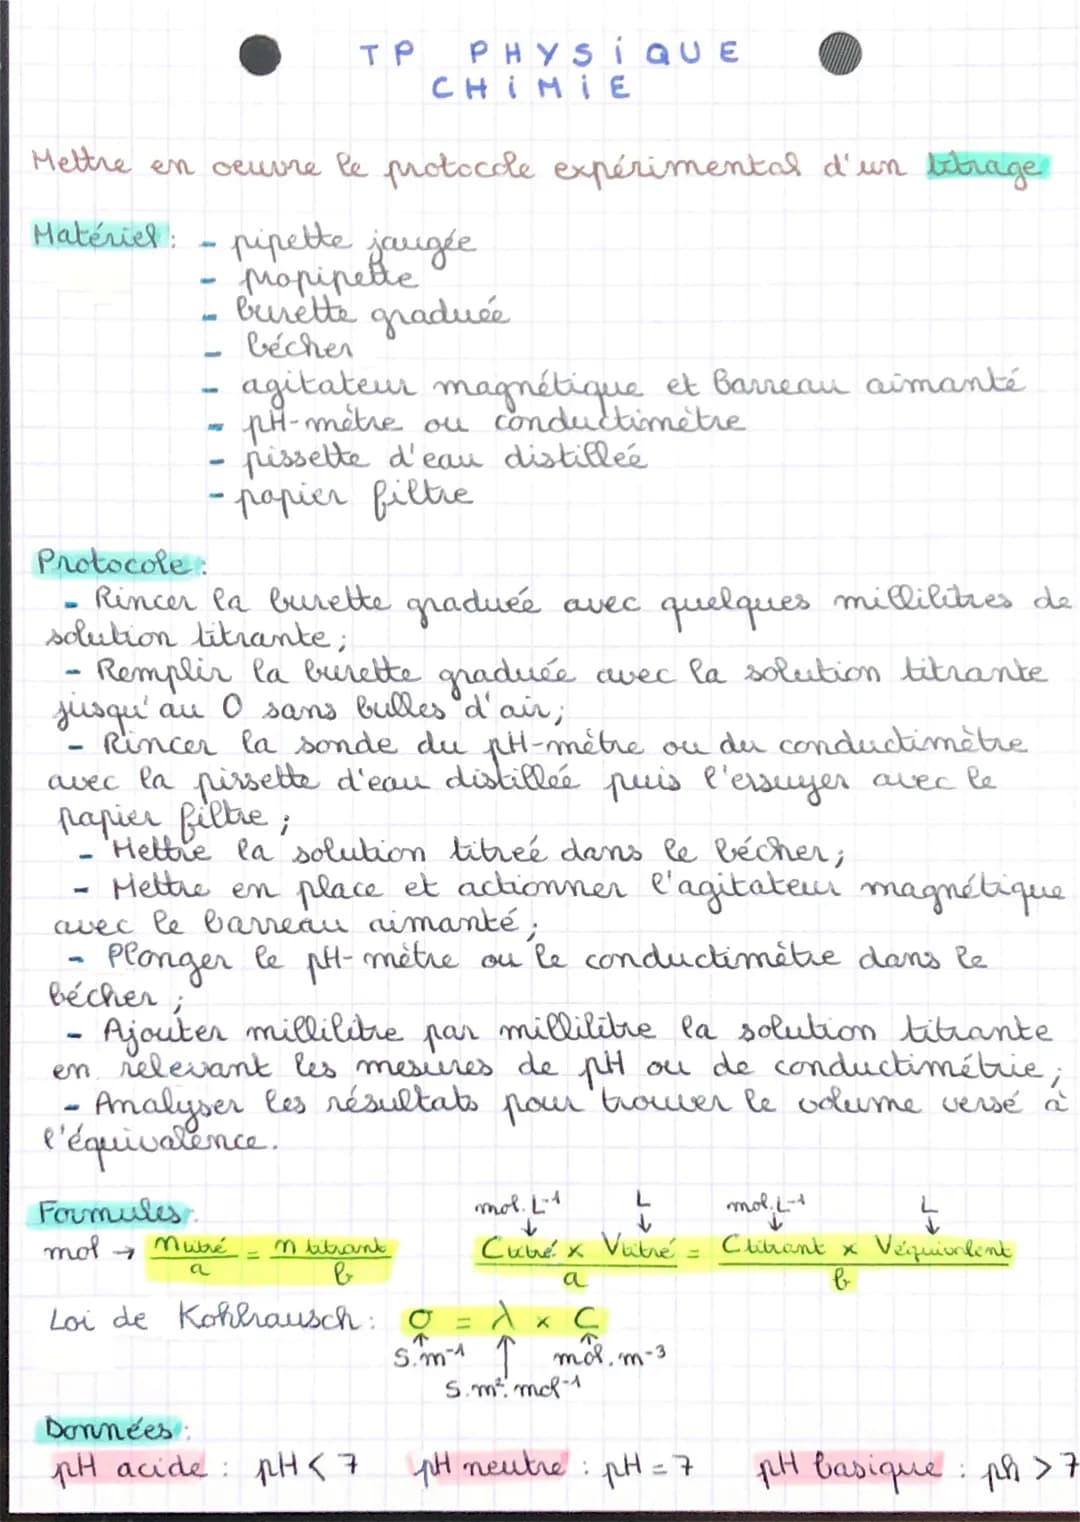 TP PHYSIQUE
CHIMIE
Mettre en oeuvre le protocole expérimental d'un titrage
Matériel : - pipette jaugée
- propipette
- burette graduée
- bécher
- agitateur magnétique et barreau aimanté
- pH-mètre ou conductimètre
- pissette d'eau distillée
- papier filtre
Protocole :
- Rincer la burette graduée avec quelques millilitres de
solution titrante ;
- Remplir la burette graduée avec la solution titrante
jusqu'au 0 sans bulles d'air ;
- Rincer la sonde du pH-mètre ou du conductimètre
avec la pissette d'eau distillée puis l'essuyer avec le
papier filtre ;
- Mettre la solution titrée dans le bécher ;
- Mettre en place et actionner l'agitateur magnétique
avec le barreau aimanté ;
- Plonger le pH-mètre ou le conductimètre dans le
bécher ;
- Ajouter millilitre par millilitre la solution titrante
en relevant les mesures de pH ou de conductimétrie ;
- Analyser les résultats pour trouver le volume versé à
l'équivalence.
Formules : mol.L-1 L mol.L-1 L
mol → n titré = n titrant C titré x V titré = C titrant x V équivalent
a b a b
Loi de Kohlrausch : σ = λ x C
S.m-1 mol.m-3
S.m².mol-1
Données :
pH acide : pH < 7 pH neutre : pH = 7 pH basique : ph > 7